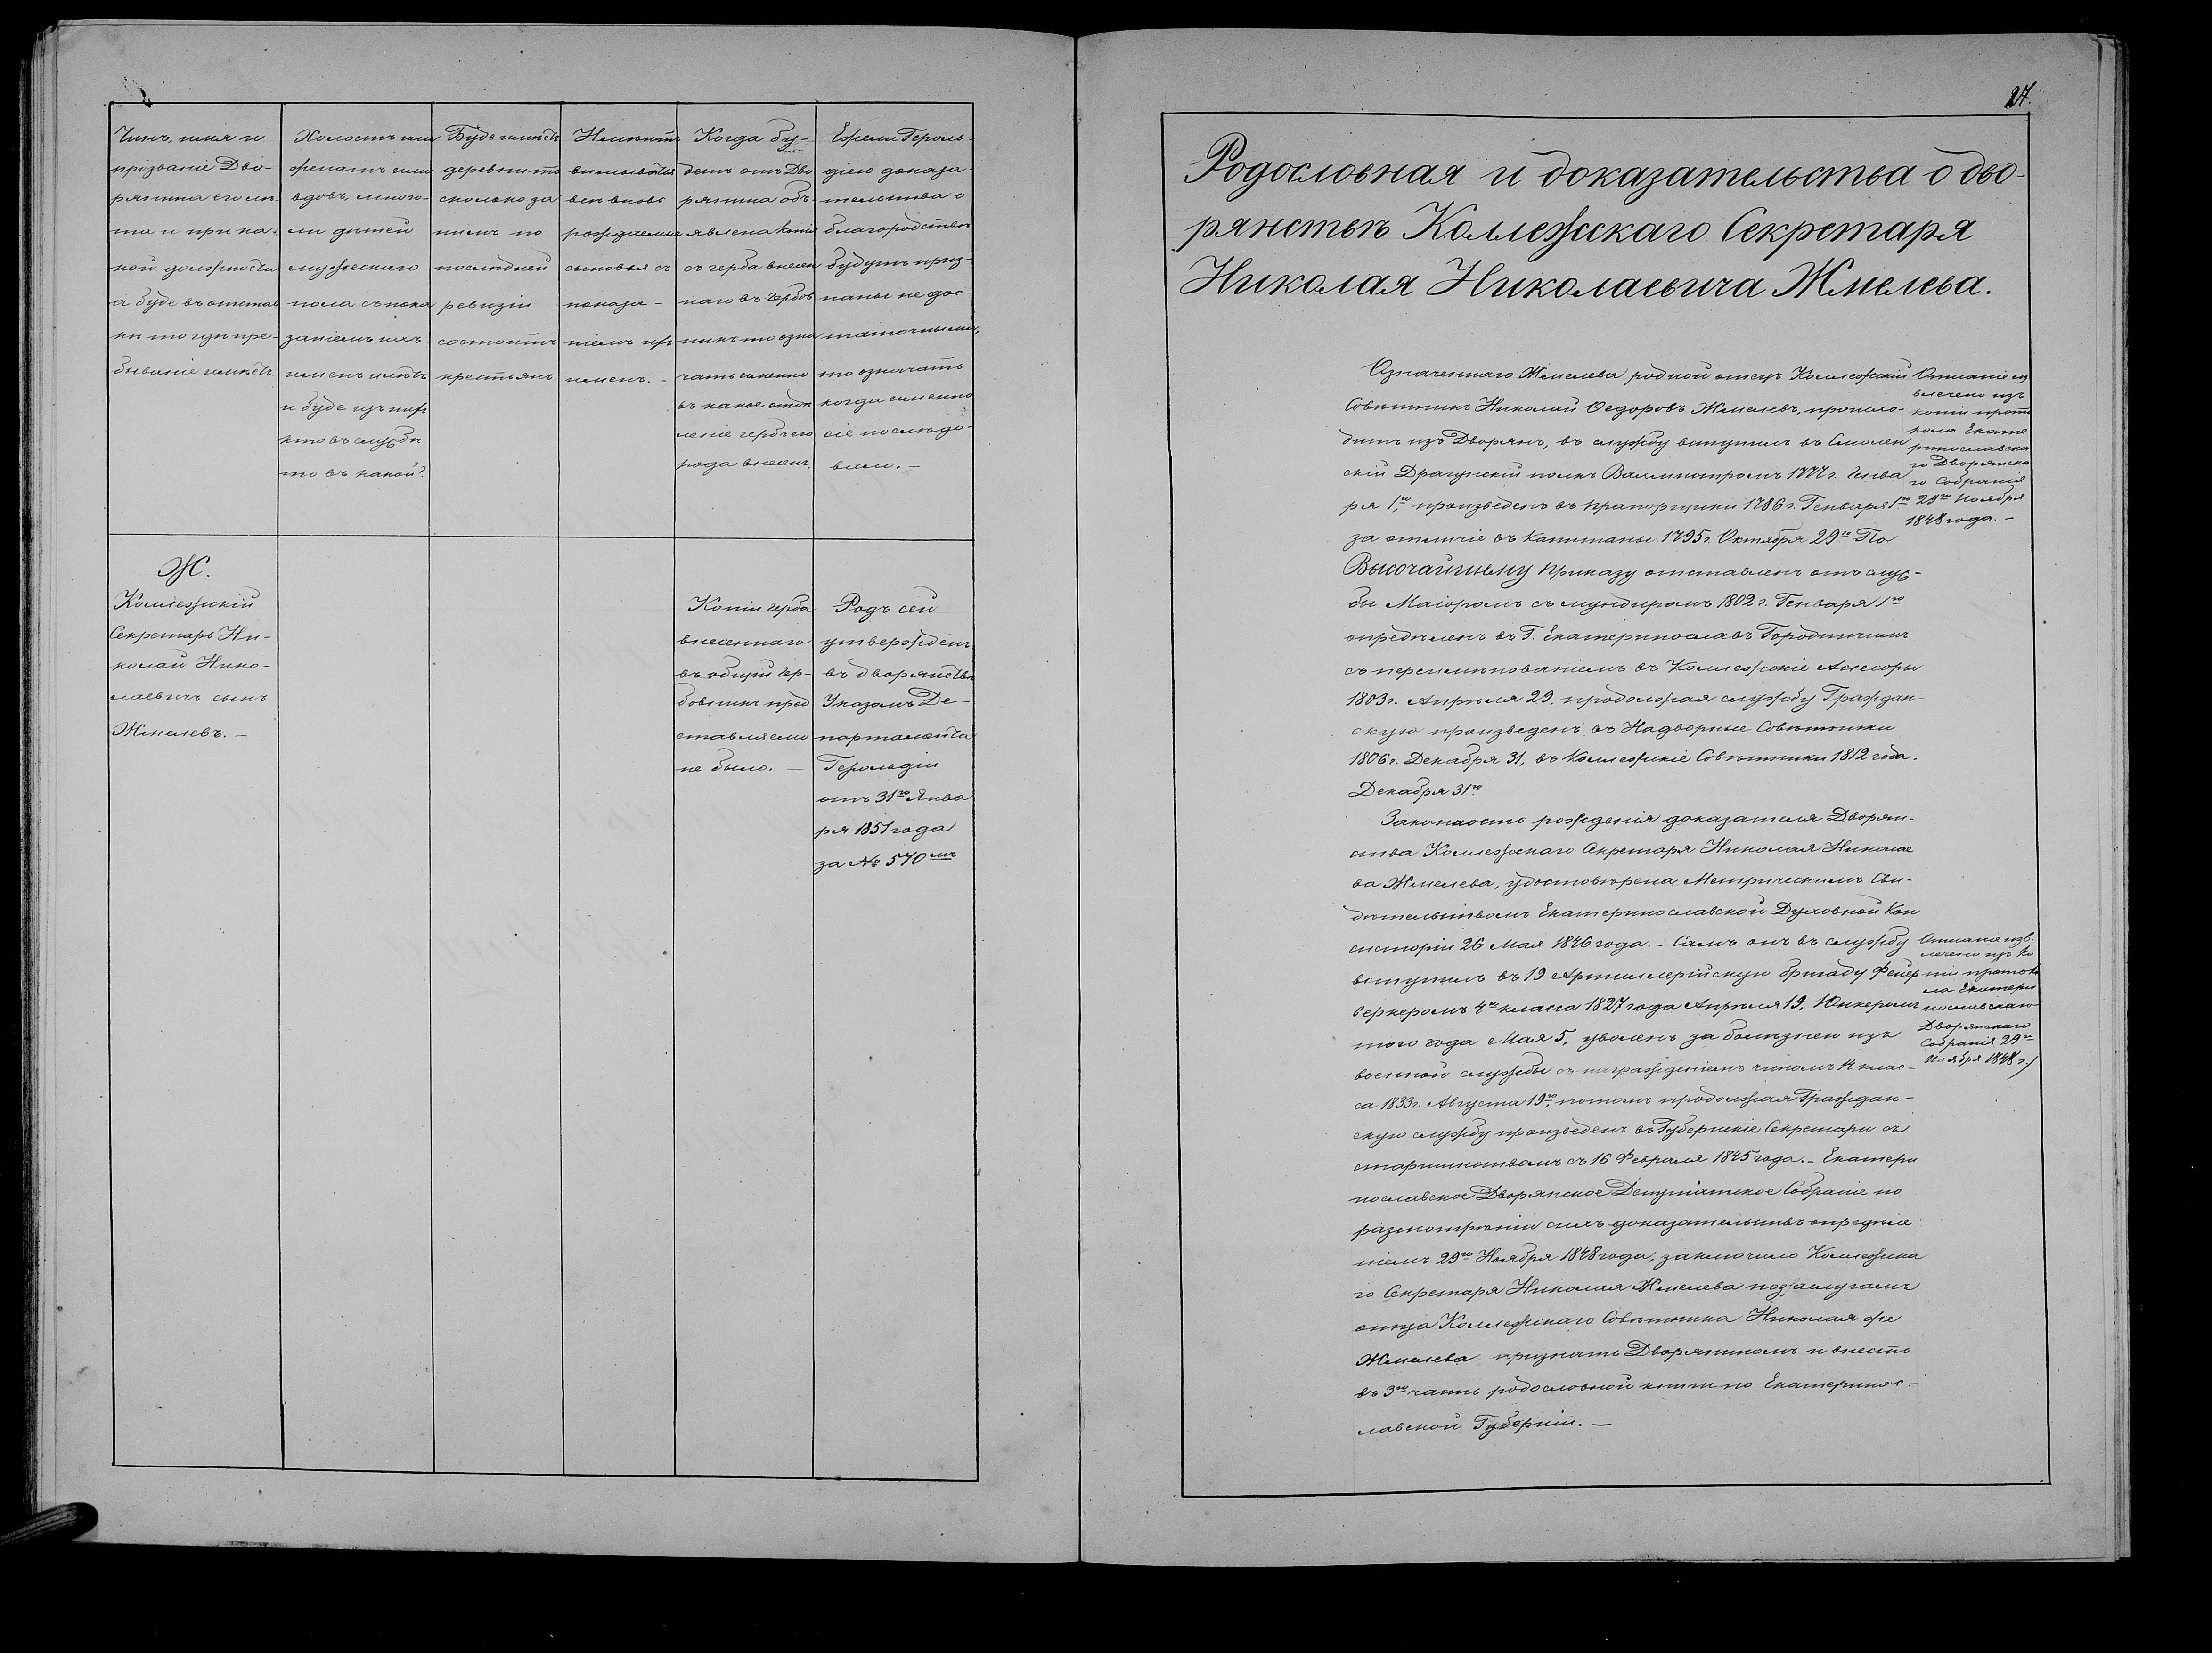 Чинъ, имя и
прізваніе Дво-
рянина его лѣ-
та и при ка-
кой должности
а буде въ отстав
кѣ то гдѣ пре-
бываніе имѣетъ.
Холостъ или
женатъ или
вдовъ, много-
ли дѣтей
мужескаго
пола съ пока
заніемъ ихъ
именъ и лѣтъ
и буде изъ нихъ
кто въ службѣ
то въ какой?
Буде имѣетъ
деревни то
сколько за
нимъ по
послѣдней
ревизіи
состоитъ
крестьянъ.
Не имѣютъ
ли
вновь
рождаемые
сыновья съ
показа-
ніемъ ихъ
именъ. -
Когда бу-
детъ отъ Дво
рянина объ-
явлена копія
съ герба внесен
наго въ гербов
никъ то озна
чать именно
въ какое отдѣ
леніе герб его
рода внесенъ.
Ежели Героль-
діею доказа-
тельства о
благородствѣ
будутъ приз-
наны не дос-
таточными,
то означать
когда именно
сіе послѣдо-
вало. -
Ж.
Коллежскій
Секретарь Ни-
колай Нико-
лаевичъ сынъ
Жмелевъ. -
Копіи герба
внесеннаго
въ общій гер-
бовникъ пред
ставляемо
не было. -
Родъ сей
утвержденъ
въ дворянствѣ
Указомъ Де-
партамента
Герольдіи
отъ 31го Янва
ря 1851 года
за № 570мъ
27.
Родословная и доказательства о дво-
рянствѣ Коллежскаго Секретаря
Николая Николаевича Жмелева.
Означеннаго Жмелева родной отецъ Коллежскій
Совѣтникъ Николай Ѳедоровъ Жмелевъ, происхо-
дитъ изъ Дворянъ, въ службу вступилъ въ Смолен
скій Драгунскій полкъ Вахмистромъ 1777 г. Генва
ря 1го, произведенъ въ Прапорщики 1786 г. Генваря 1го
за отличіе въ Капитаны 1795 г. Октября 29го По
Высочайшему приказу отставленъ отъ служ-
бы Маіоромъ съ мундиромъ 1802 г. Генваря 1го
опредѣленъ въ Г. Екатеринославъ Городничимъ
съ переименованіемъ въ Коллежскіе Ассесоры
1803 г. Апрѣля 29. продолжая службу Граждан-
скую произведенъ въ Надворные Совѣтники
1806 г. Декабря 31, въ Коллежскіе Совѣтники 1812 года.
Декабря 31го
Описаніе из
влечено изъ
копіи прото
кола Екате
ринославска
го Дворянска
го Собранія
29го Ноября
1848 года. -
Законность рожденія доказателя Дворян-
ства Коллежскаго Секретаря Николая Николае
ва Жмелева, удостовѣрена Метрическимъ Сви-
дѣтельствомъ Екатеринославской Духовной Кон
систоріи 26 Мая 1846 года. - Самъ онъ въ службу
вступилъ въ 19 Артиллерійскую бригаду Фейер
веркеромъ 4го класса 1827 года Апрѣля 19, Юнкеромъ
того года Мая 5, уволенъ за болѣзнею изъ
военной службы съ награжденіемъ чиномъ 14 клас-
са 1833 г. Августа 19го, потомъ продолжая Граждан-
скую службу произведенъ въ Губернскіе Секретари съ
старшинствомъ съ 16 Февраля 1845 года. - Екатери
нославское Дворянское Депутатское Собраніе по
разсмотрѣніи сихъ доказательствъ опредѣле
ніемъ 29го Ноября 1848 года, заключило Коллежска
го Секретаря Николая Жмелева по заслугамъ
отца Коллежскаго Совѣтника Николая же
Жмелева признать Дворяниномъ и внесть
въ 3ю часть родословной книги по Екатеринос-
лавской Губерніи. -
Описаніе изв-
лечено изъ ко
піи протоко
ла Екатери
нославскаго
Дворянскаго
Собранія 29го
Ноября 1848 г.)